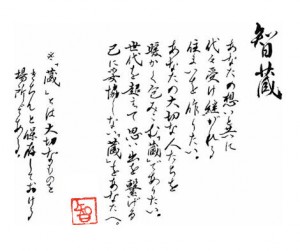 智蔵
あなたの想いと共に
代々受け継がれる
住まいを作りたい。
あなたの大切な人たちを
暖かく包みこむ“蔵”でありたい。
世代を超えて思い出を繋げる
己に妥協しない“蔵”をあなたへ。
※“蔵”とは大切なものを
きちんと保存しておける
場所である。
智